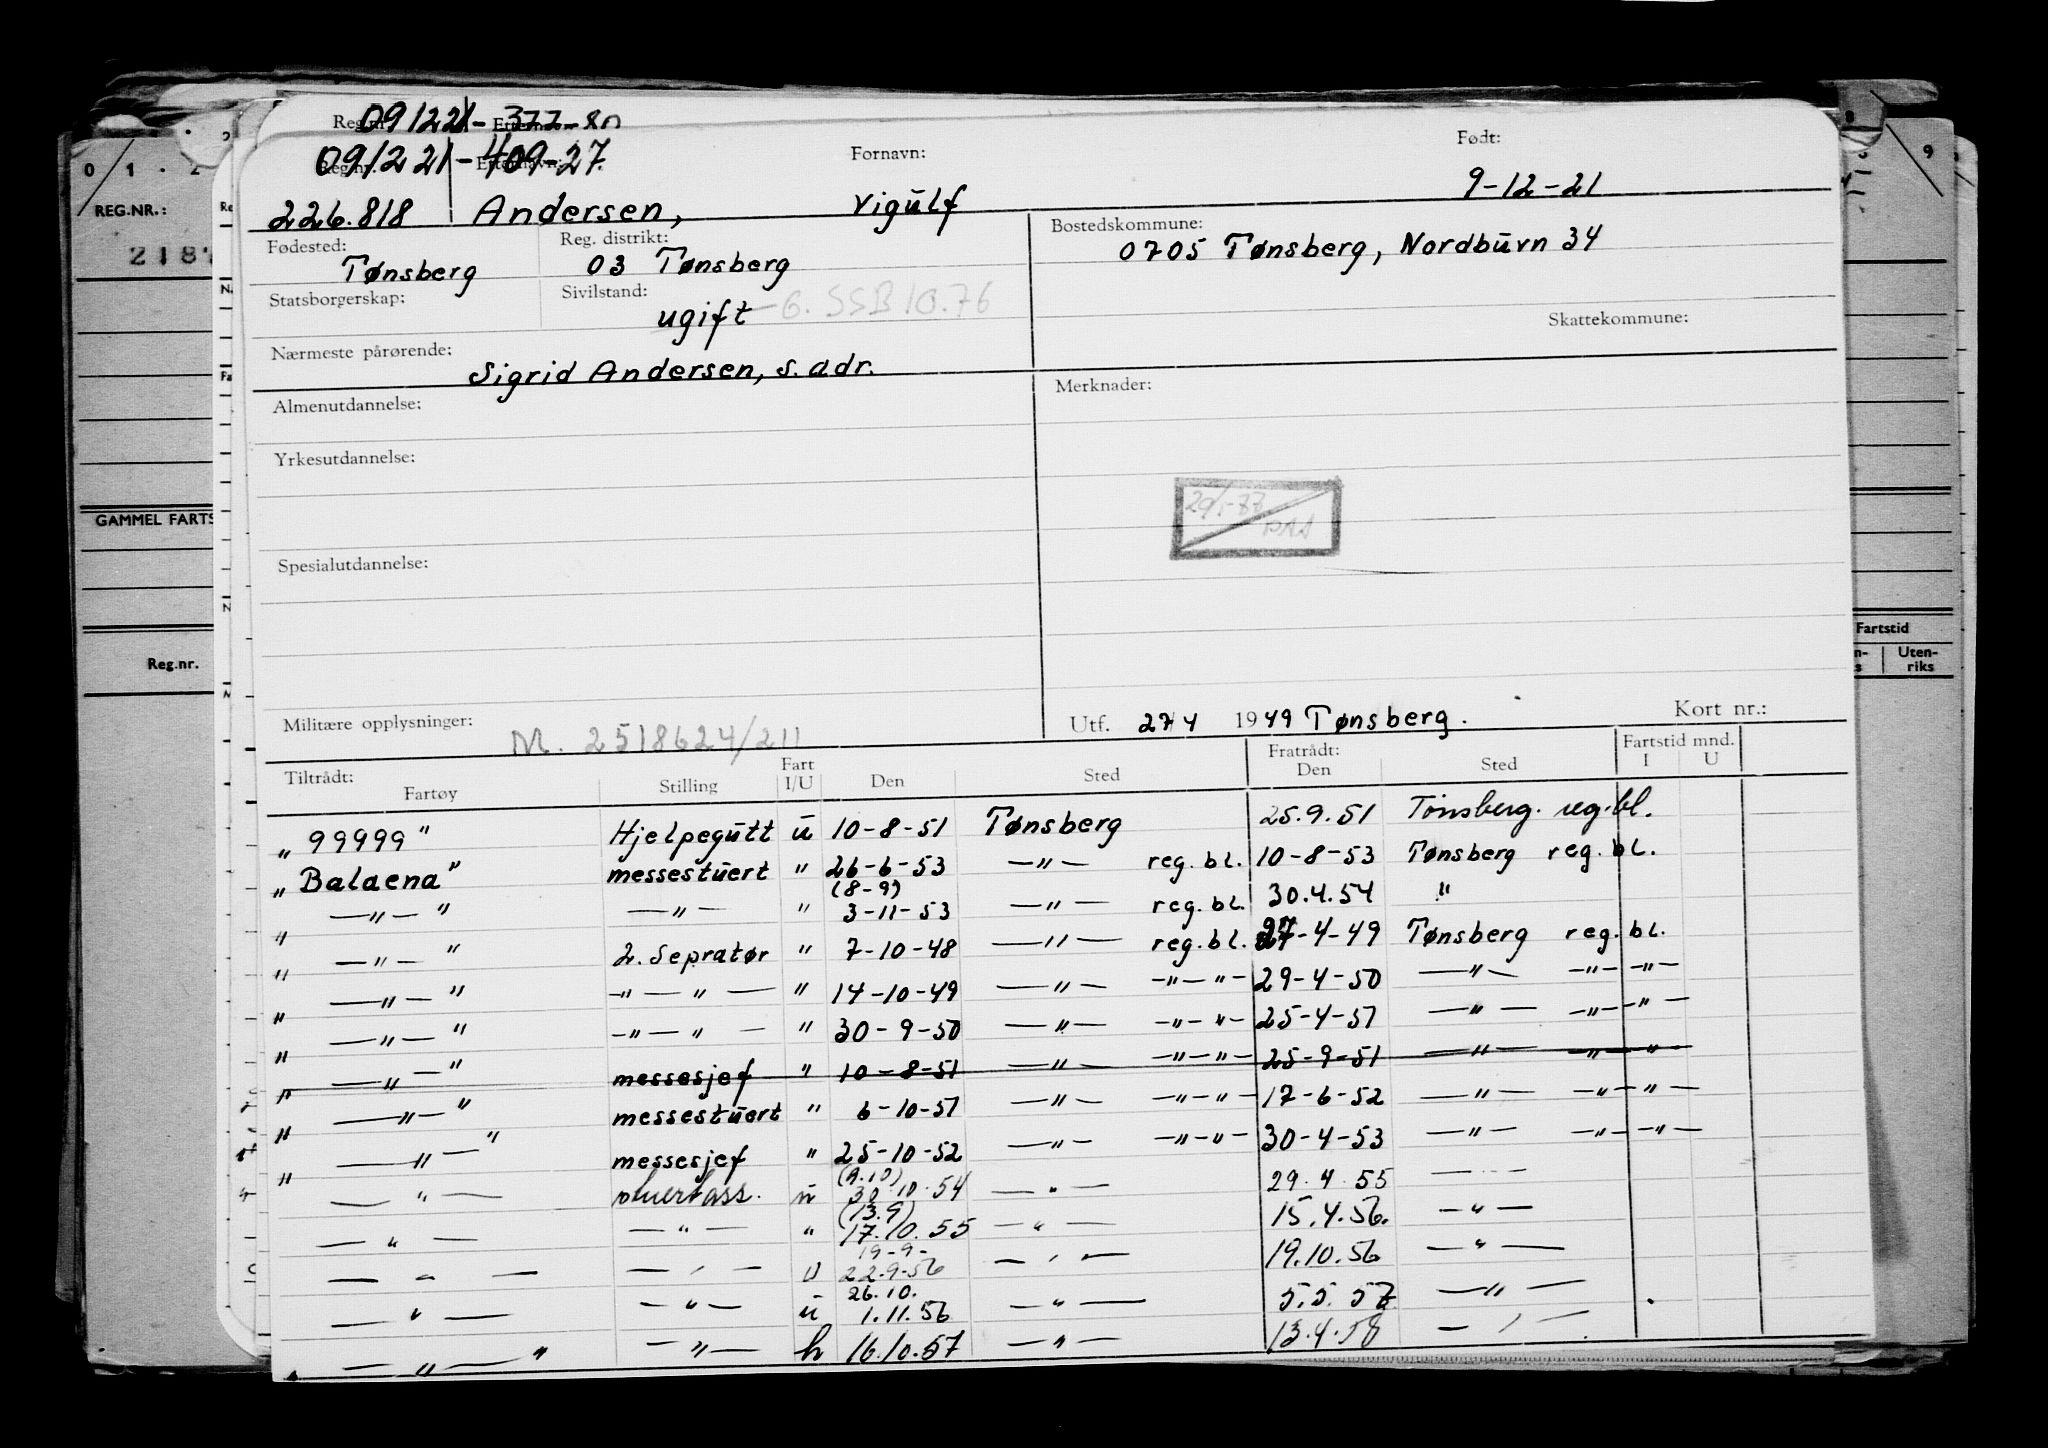 Reg.nr. 091221-377-80
Reg.nr. 091221-409-27. Etternavn: Fornavn: Født:
226.818 Andersen, Vigulf 9-12-21
Fødested: Tønsberg Reg. distrikt: 03 Tønsberg Bostedskommune: 0705 Tønsberg, Nordbúvn 34
Statsborgerskap: Sivilstand: ugift - G. SSB 10.76
Skattekommune:
Nærmeste pårørende: Sigrid Andersen, s. adr.
Almenutdannelse: Merknader:
Yrkesutdannelse:
Spesialutdannelse:
Militære opplysninger: M. 2518624/211 Utf. 27/4 1949 Tønsberg. Kort nr.:
Tiltrådt: Fartøy Stilling Fart I/U Den Sted Fratrådt: Den Sted Fartstid mnd. I U
" 99999 " Hjelpegútt ú 10-8-51 Tønsberg 25.9.51 Tønsberg. reg.bl.
" Balaena " messestúert " 26-6-53 —"— reg. bl. 10-8-53 Tønsberg reg. bl.
" —"— " —"— " (8-9) 3-11-53 —"— reg. bl. 30.4.54 "
" —"— " 2. Sepratør " 7-10-48 —"— reg. bl. 27-4-49 Tønsberg reg. bl.
" —"— " —"—"— " 14-10-49 —"— —"—"— 29-4-50 —"— —"—"—
" —"— " —"—"— " 30-9-50 —"— —"—"— 25-4-51 —"— —"—"—
" —"— " messesjef " 10-8-51 —"— —"—"— 25-9-51 —"— —"—"—
" —"— " messestúert " 6-10-51 —"— —"—"— 17-6-52 —"— —"—"—
" —"— " messesjef " 25-10-52 —"— —"—"— 30-4-53 —"— —"—"—
—"— ú 30.10.54 —"— 29.4.55 —"—
—"— —"— " (13.9) 17.10.55 —"— 15.4.56. —"—
—"— —"— U 19-9- 22.9-56 —"— 19.10.56 —"—
—"— —"— ú 26.10. 1.11.56 —"— 5.5.57 —"—
—"— " —"— h 16.10.57 —"— 13.4.58 —"—
REG.NR.:
GAMMEL FARTS
Reg.nr.
Fartstid
Uten-
riks